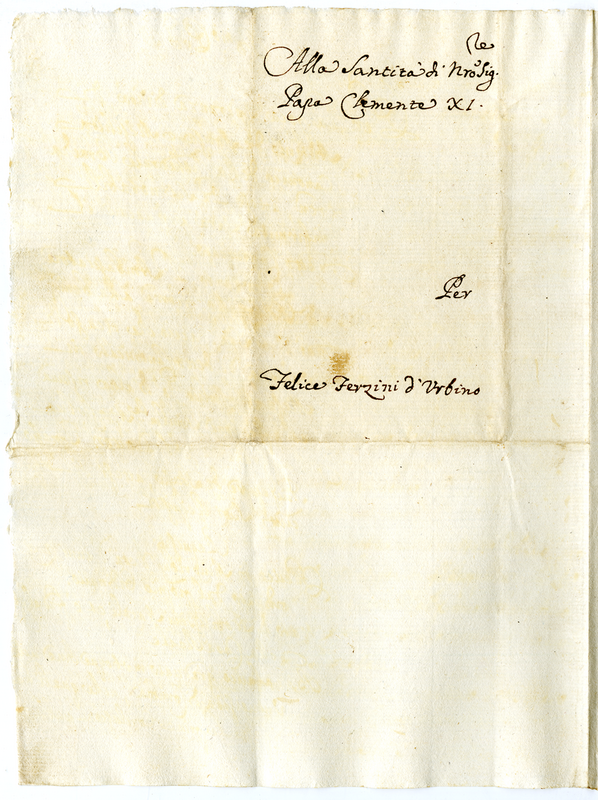 Alla Santità di Nro Sig.re
Papa Clemente XI.
Per
Felice Terzini d'Urbino